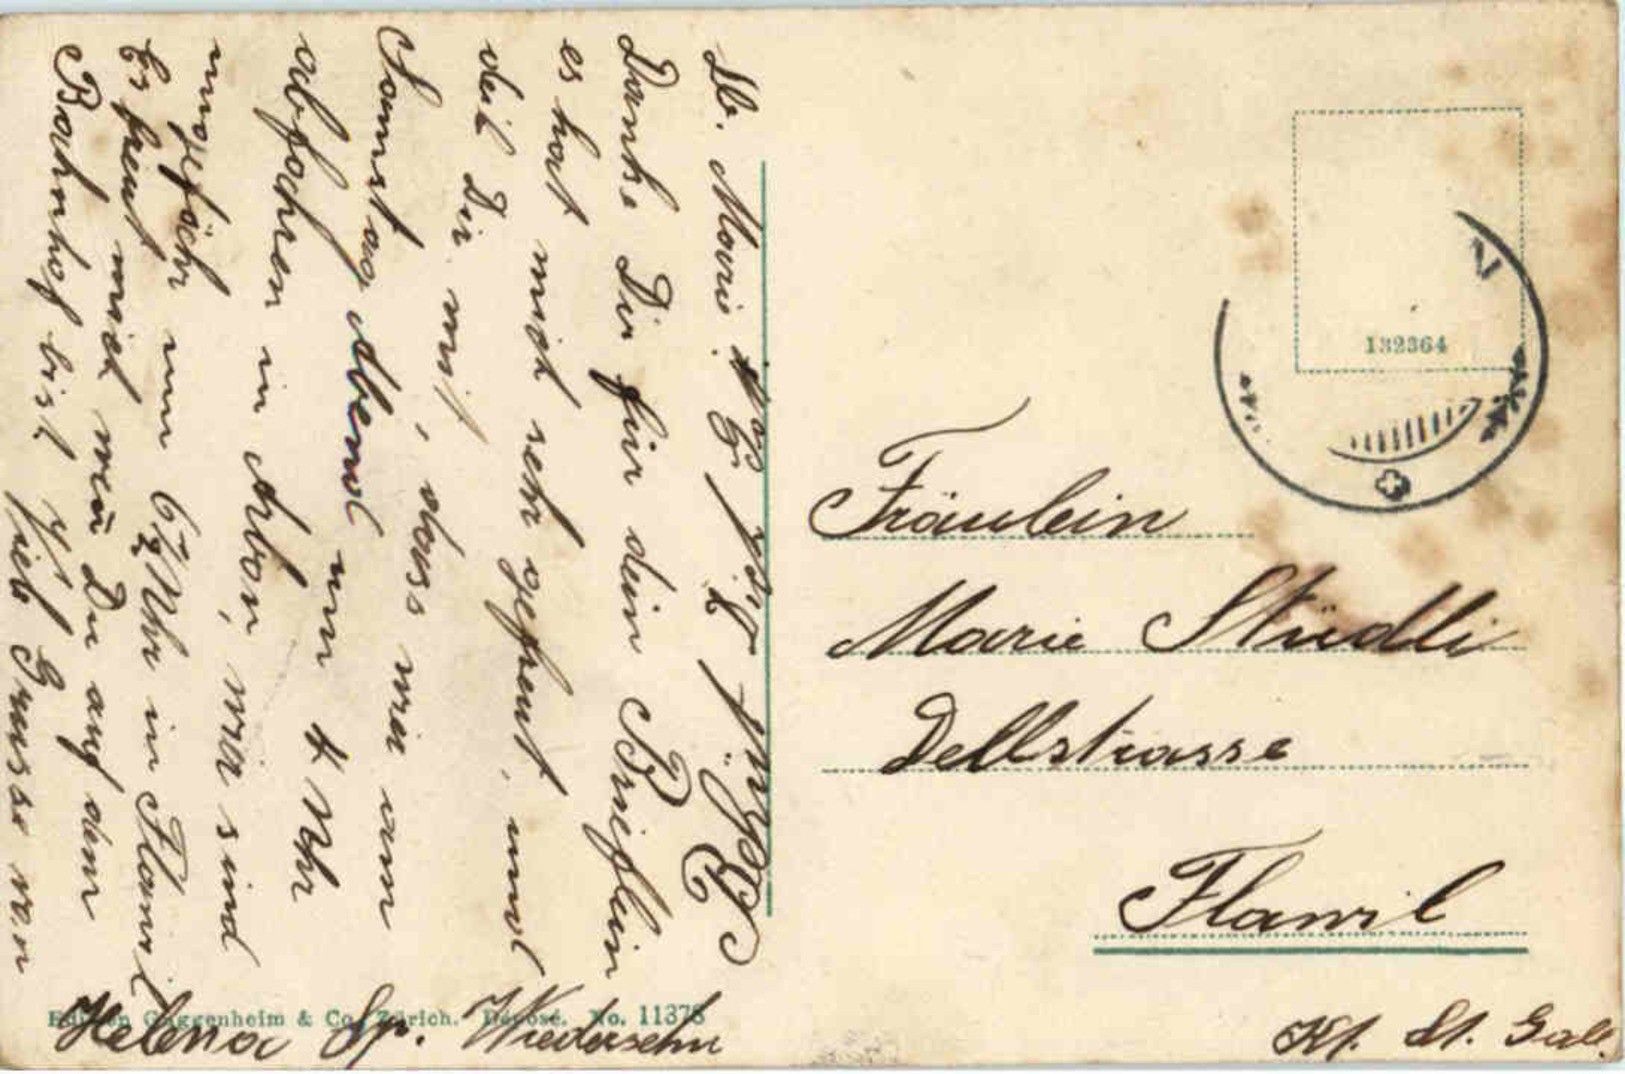 Lb. Marie!
Danke Dir für dein Brieflein
es hat mich sehr gefreut, und
teil Dir mit, dass wir am
Samstag Abend um 4 Uhr
abfahren in Arbon, wir sind
ungefähr um 6½ Uhr in Flawil
Es freut mich wen Du auf dem
Bahnhof bist. Viel Grüsse von
Helena Sp. Wiedersehn
Edition Guggenheim & Co., Zürich. Déposé. No. 11378
132364
Fräulein
Marie Stüdli
Dellstrasse
Flawil
Kt. St. Gall.